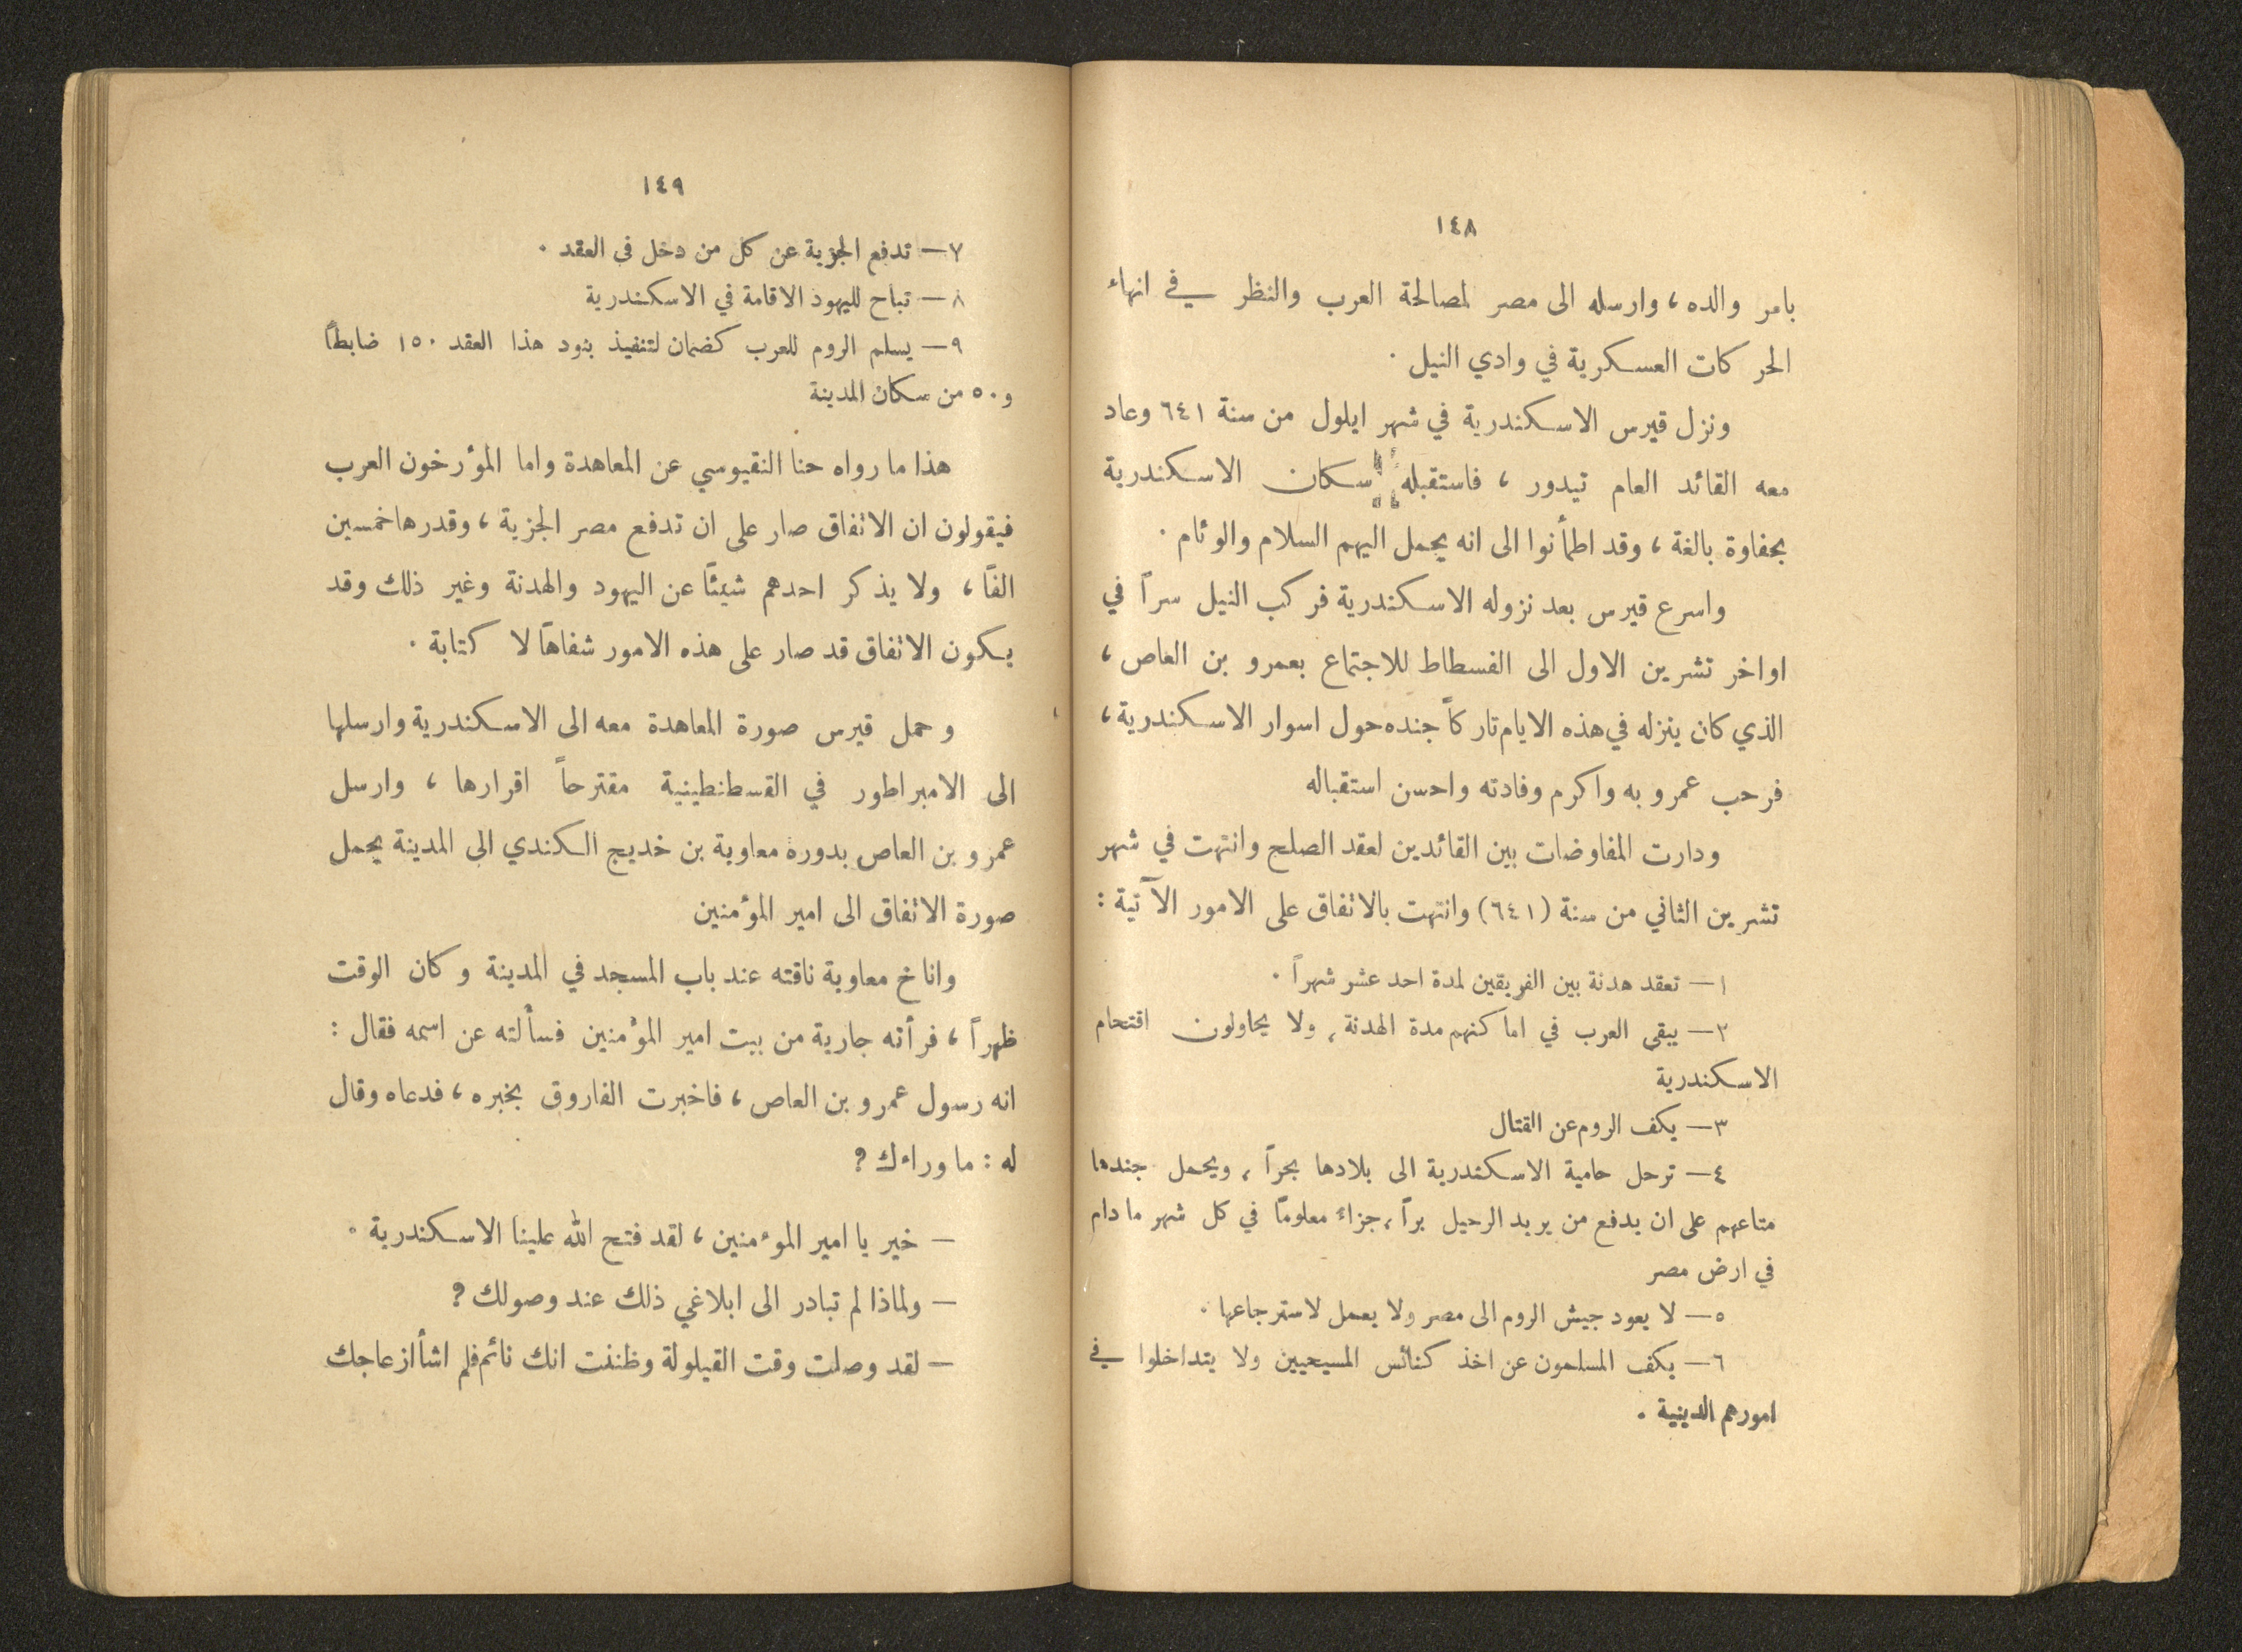 ١٤٨
بامر والده ، وارسله الى مصر لمصالحة العرب والنظر في انهاء
الحركات العسكرية في وادي النيل .
ونزل قيرس الاسكندرية في شهر ايلول من سنة ٦٤١ وعاد
معه القائد العام تيدور ، فاستقبله سكان الاسكندرية
بحفاوة بالغة ، وقد اطمأنوا الى انه يحمل اليهم السلام والوئام .
واسرع قيرس بعد نزوله الاسكندرية فركب النيل سراً في
اواخر تشرين الاول الى الفسطاط للاجتماع بعمرو بن العاص ،
الذي كان ينزله في هذه الايام تاركاً جنده حول اسوار الاسكندرية ،
فرحب عمرو به واكرم وفادته واحسن استقباله
ودارت المفاوضات بين القائدين لعقد الصلح وانتهت في شهر
تشرين الثاني من سنة (٦٤١) وانتهت بالاتفاق على الامور الآتية :
١ – تعقد هدنة بين الفريقين لمدة احد عشر شهراً .
٢ – يبقى العرب في اماكنهم مدة الهدنة ، ولا يحاولون اقتحام
الاسكندرية
٣ – يكف الروم عن القتال
٤ – ترحل حامية الاسكندرية الى بلادها بحراً ، ويحمل جندها
متاعهم على ان يدفع من يريد الرحيل براً ، جزاء معلوماً في كل شهر ما دام
في ارض مصر
٥ – لا يعود جيش الروم الى مصر ولا يعمل لاسترجاعها .
٦ – يكف المسلمون عن اخذ كنائس المسيحيين ولا يتداخلوا في
امورهم الدينية .
١٤٩
٧ – تدفع الجزية عن كل من دخل في العقد .
٨ – تباح لليهود الاقامة في الاسكندرية
٩ – يسلم الروم للعرب كضمان لتنفيذ بنود هذا العقد ١٥٠ ضابطاً
و ٥٠ من سكان المدينة
هذا ما رواه حنا النقيوسي عن المعاهدة واما المؤرخون العرب
فيقولون ان الاتفاق صار على ان تدفع مصر الجزية ، وقدرها خمسين
الفاً ، ولا يذكر احدهم شيئاً عن اليهود والهدنة وغير ذلك وقد
يكون الاتفاق قد صار على هذه الامور شفاهاً لا كتابة .
وحمل قيرس صورة المعاهدة معه الى الاسكندرية وارسلها
الى الامبراطور في القسطنطينية مقترحاً اقرارها ، وارسل
عمرو بن العاص بدوره معاوية بن خديج الكندي الى المدينة يحمل
صورة الاتفاق الى امير المؤمنين
واناخ معاوية ناقته عند باب المسجد في المدينة وكان الوقت
ظهراً ، فرأته جارية من بيت امير المؤمنين فسألته عن اسمه فقال :
انه رسول عمرو بن العاص ، فاخبرت الفاروق بخبره ، فدعاه وقال
له : ما وراءك ؟
– خير يا امير المؤمنين ، لقد فتح الله علينا الاسكندرية .
– ولماذا لم تبادر الى ابلاغي ذلك عند وصولك ؟
– لقد وصلت وقت القيلولة وظننت انك نائم فلم اشأ ازعاجك